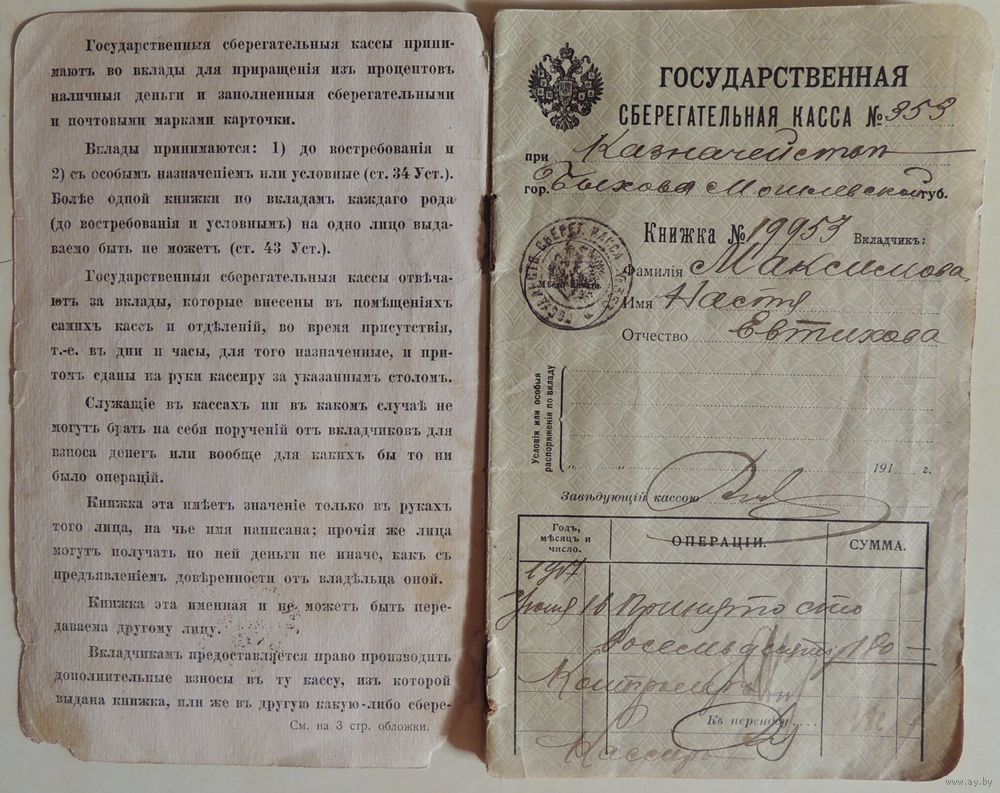 Государственныя сберегательныя кассы прини-
маютъ во вклады для приращенія изъ процентовъ
наличныя деньги и заполненныя сберегательными
и почтовыми марками карточки.
Вклады принимаются: 1) до востребованія и
2) съ особымъ назначеніемъ или условные (ст. 34 Уст.).
Болѣе одной книжки по вкладамъ каждаго рода
(до востребованія и условнымъ) на одно лицо выда-
ваемо быть не можетъ (ст. 43 Уст.).
Государственныя сберегательныя кассы отвѣча-
ютъ за вклады, которые внесены въ помѣщеніяхъ
самихъ кассъ и отдѣленій, во время присутствія,
т.-е. въ дни и часы, для того назначенные, и при-
томъ сданы на руки кассиру за указаннымъ столомъ.
Служащіе въ кассахъ ни въ какомъ случаѣ не
могутъ брать на себя порученій отъ вкладчиковъ для
взноса денегъ или вообще для какихъ бы то ни
было операцій.
Книжка эта имѣетъ значеніе только въ рукахъ
того лица, на чье имя написана; прочія же лица
могутъ получать по ней деньги не иначе, какъ съ
предъявленіемъ довѣренности отъ владѣльца оной.
Книжка эта именная и не можетъ быть пере-
даваема другому лицу.
Вкладчикамъ предоставляется право производить
дополнительные взносы въ ту кассу, изъ которой
выдана книжка, или же въ другую какую-либо сбере-
См. на 3 стр. обложки.
ГОСУДАРСТВЕННАЯ
СБЕРЕГАТЕЛЬНАЯ КАССА № 353
при Казначействѣ
гор. Быхова Могилевской губ.
Книжка № 19953 Вкладчикъ:
Фамилія Максимова
Имя Настя
Отчество Евтихова
ГОСУДАРСТВ. СБЕРЕГ. КАССА
Мѣсто печати.
Условія или особыя
распоряженія по вкладу
191 г.
Завѣдующій кассою
Годъ,
мѣсяцъ и
число.
ОПЕРАЦІИ.
СУММА.
1917
16 Принято сто
восемьдесятъ 180 —
Контролеръ
Къ переносу
Кассиръ
www.ay.by